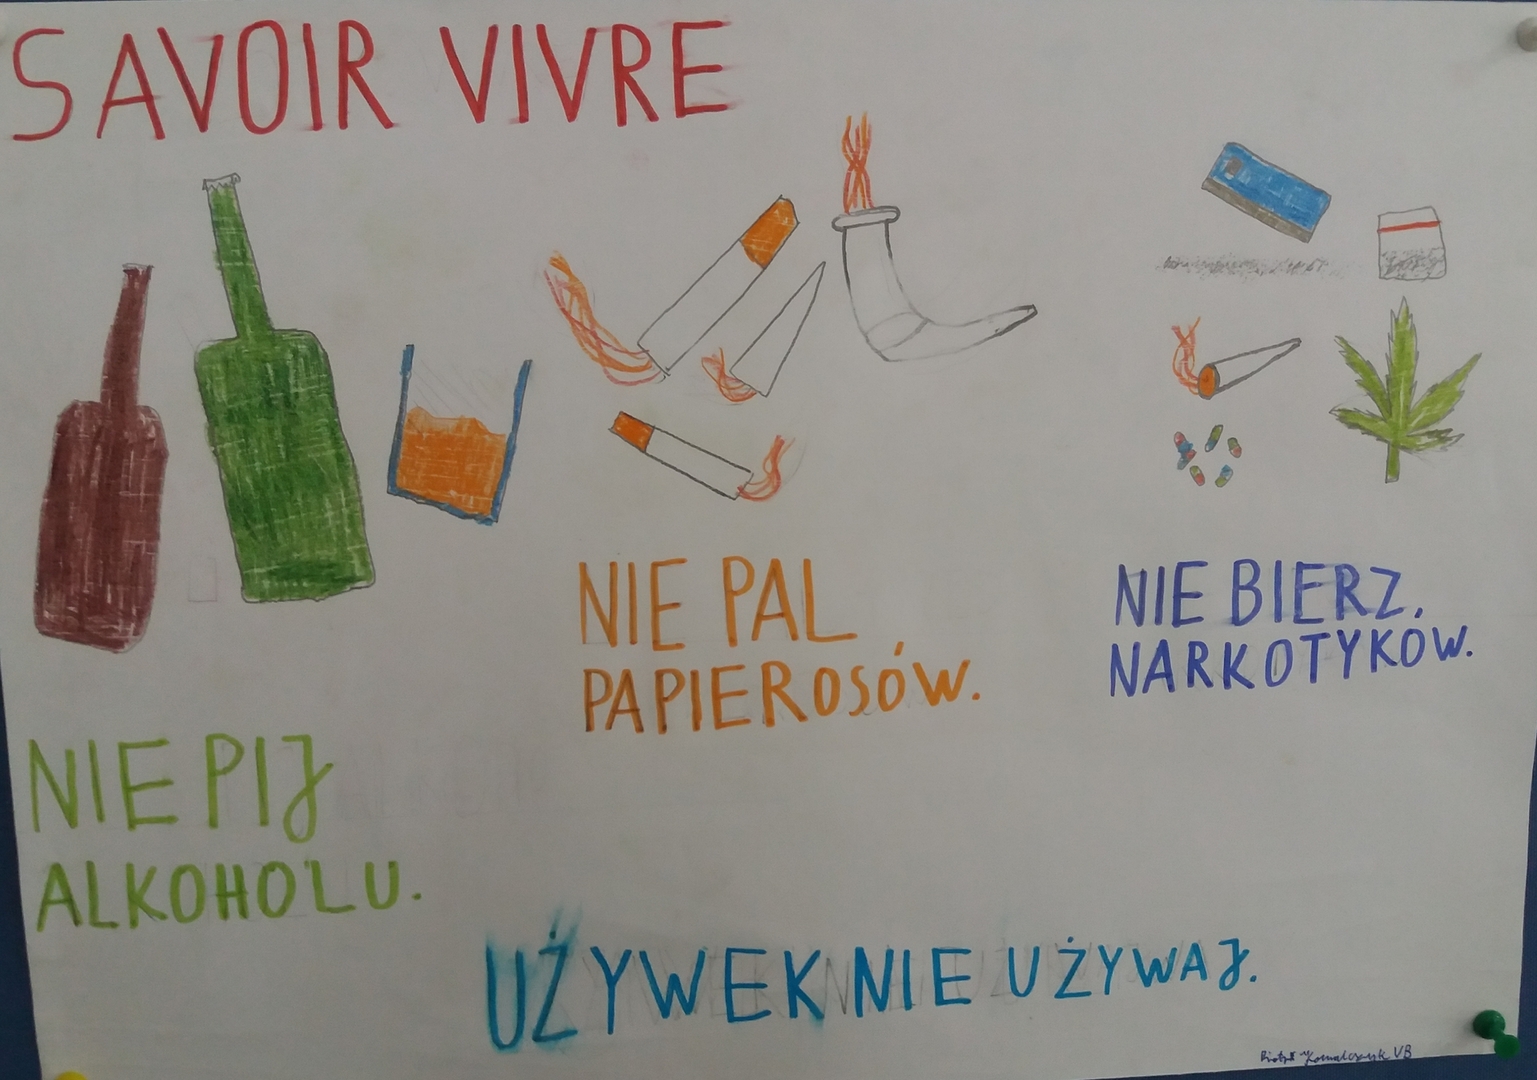 SAVOIR VIVRE
NIE PAL
PAPIEROSÓW.
NIE BIERZ.
NARKOTYKÓW.
NIE PIJ
ALKOHOLU.
UŻYWEK NIE UŻYWAJ.
Kowalczyk VB